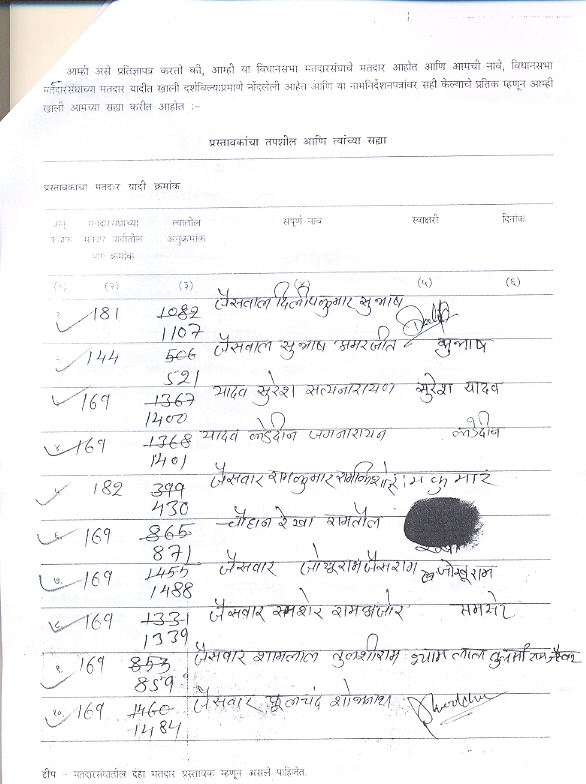 आम्ही असे प्रतिज्ञापत्र करतो की, आम्ही या विधानसभा मतदारसंघाचे मतदार आहोत आणि आमची नावे, विधानसभा
मतदारसंघाच्या मतदार यादीत खाली दर्शविल्याप्रमाणे नोंदलेली आहेत आणि या नामनिर्देशनपत्रांवर सही केल्याचे प्रतिक म्हणून आम्ही
खाली आमच्या सह्या करीत आहोत :-
प्रस्तावकांचा तपशील आणि त्यांच्या सह्या
प्रस्तावकाचा मतदार यादी क्रमांक
अनु क्रमांक मतदारसंघाच्या मतदार यादीतील भाग क्रमांक त्यातील अनुक्रमांक संपूर्ण नाव स्वाक्षरी दिनांक
(१) (२) (३) (४) (५) (६)
१ 181 1082 जैसवाल दिलीपकुमार सुभाष
1107
144 506 जैसवाल सुभाष अमरजीत सुभाष
521
169 1367 यादव सुरेश सत्यनारायण सुरेश यादव
1400
४ 169 1368 यादव जगनारायन
1401
५ 182 399 जैसवार रामकुमार रामकिशोर
430
६ 169 865 चौहान रेखा
871
७ 169 1455 जैसवार जोखुराम जैसराग जोखूराम
1488
८ 169 1331 जैसवार समशेर रामअजोर समसेर
1339
९ 169 853 जैसवार शामलाल तुलशीराम श्याम लाल
859
१० 169 1460 जैसवार फूलचंद शोभनाथ
1484
टीप - मतदारसंघातील दहा मतदार प्रस्तावक म्हणून असले पाहिजेत.